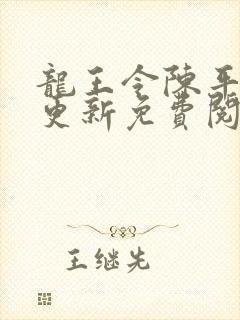 龍王令陳平
更新免費閱
王继先